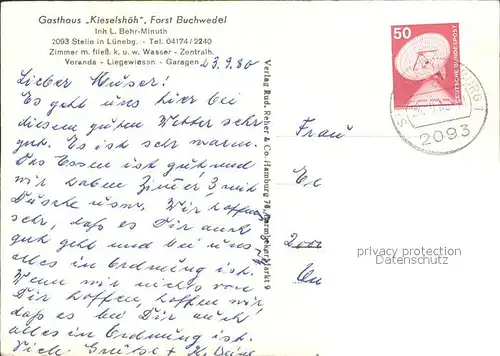 Gasthaus „Kieselshöh", Forst Buchwedel
Inh L. Behr-Minuth
2093 Stelle in Lünebg. - Tel. 04174 / 2240
Zimmer m. fließ. k. u. w. Wasser - Zentralh.
Veranda - Liegewiesen - Garagen
23.9.80
Lieber
Es geht uns hier bei
diesem guten Wetter sehr
gut. Es ist sehr warm.
Das Essen ist gut, und
wir haben Zimmer 3 mit
Dusche usw. Wir hoffen
sehr, daß es Dir auch
gut geht und bei uns
alles in Ordnung ist.
Wenn wir nichts von
Dir hören, hoffen wir,
daß es bei Dir auch
alles in Ordnung ist.
Viele Grüße
Verlag Rud. Reher & Co. Hamburg 76, Barmbeker Markt 9
50
DEUTSCHE BUNDESPOST
2093
Frau
2000
privacy protection
watermark